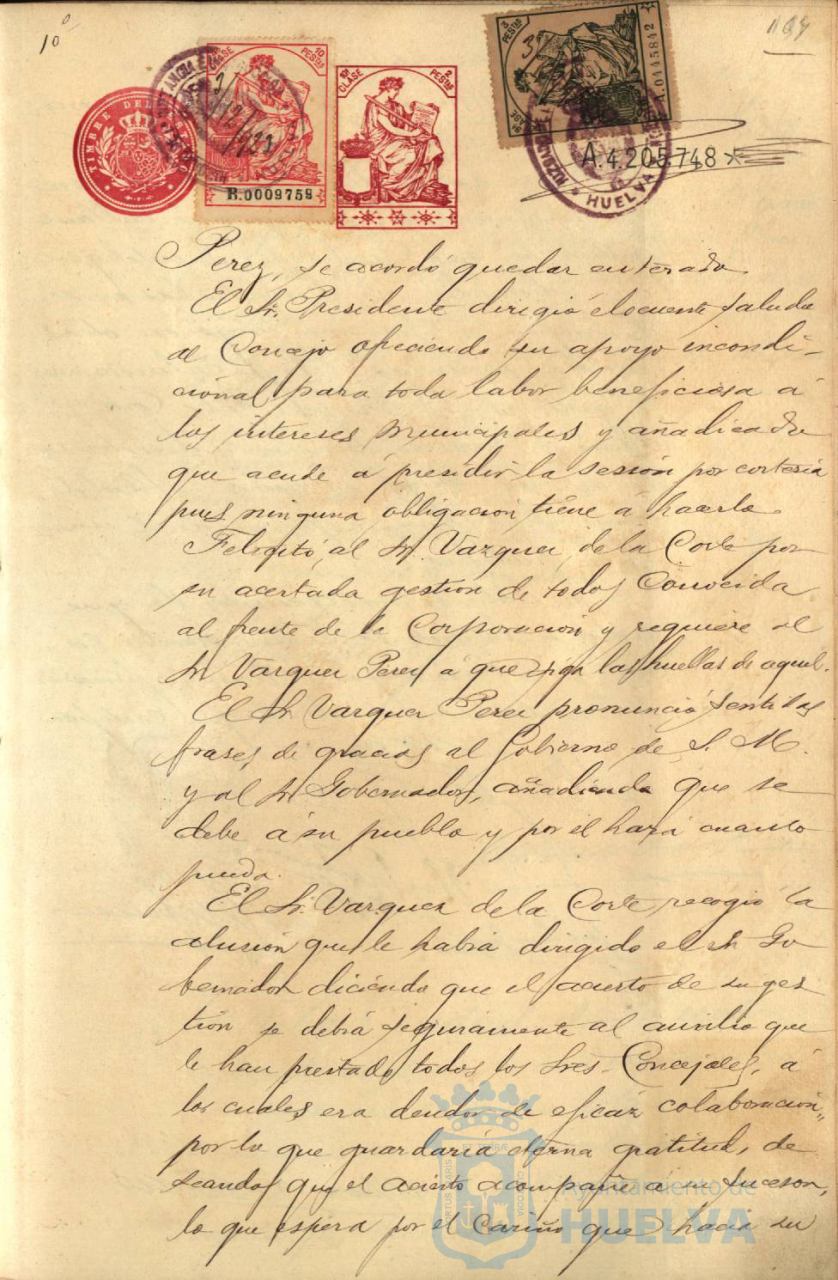 10
TIMBRE DEL
CLASE 10 PESTAS
B.0009759
10ª CLASE 2 PESTAS
3 PESTAS
A.0445842
A.4.205,748
HUELVA
Perez, se acordó quedar enterado.
El Sr. Presidente dirigió elocuente saludo
al Concejo ofreciendo su apoyo incondi-
cional para toda labor beneficiosa á
los intereses municipales y añadiendo
que acude á presidir la sesión por cortesia
pues ninguna obligacion tiene á hacerlo.
Felicitó, al Sr. Vazquez de la Corte por
su acertada gestión de todos conocida
al frente de la Corporación y requiere al
Sr Vazquez Perez á que siga las huellas de aquel.
El Sr Vazquez Perez pronunció sentidas
frases de gracias al Gobierno de S. M.
y al Sr Gobernador, añadiendo que se
debe á su pueblo y por el hará cuanto
pueda.
El Sr. Vazquez de la Corte recogió la
alusión que le habiá dirigido el Sr Go
bernador diciendo que el acierto de su ges
tión se debiá seguramente al auxilio que
le han prestado todos los Sres. Concejales, á
los cuales era deudor de eficaz colaboracion,,
por lo que guardaria eterna gratitud, de
seando que el acierto acompañe a su sucesor,
lo que espera por el Cariño que hacia su
Ayuntamiento de
HUELVA